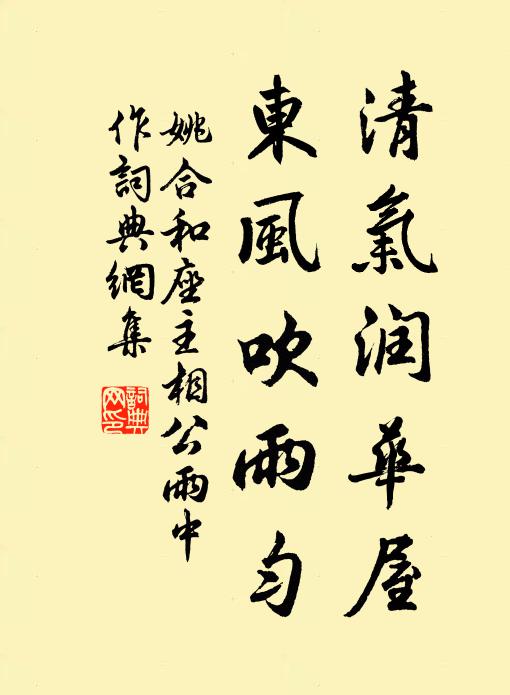 清氣润華屋
東風吹雨勻
姚合和座主相公雨中
作詞典網集
詞典
网印